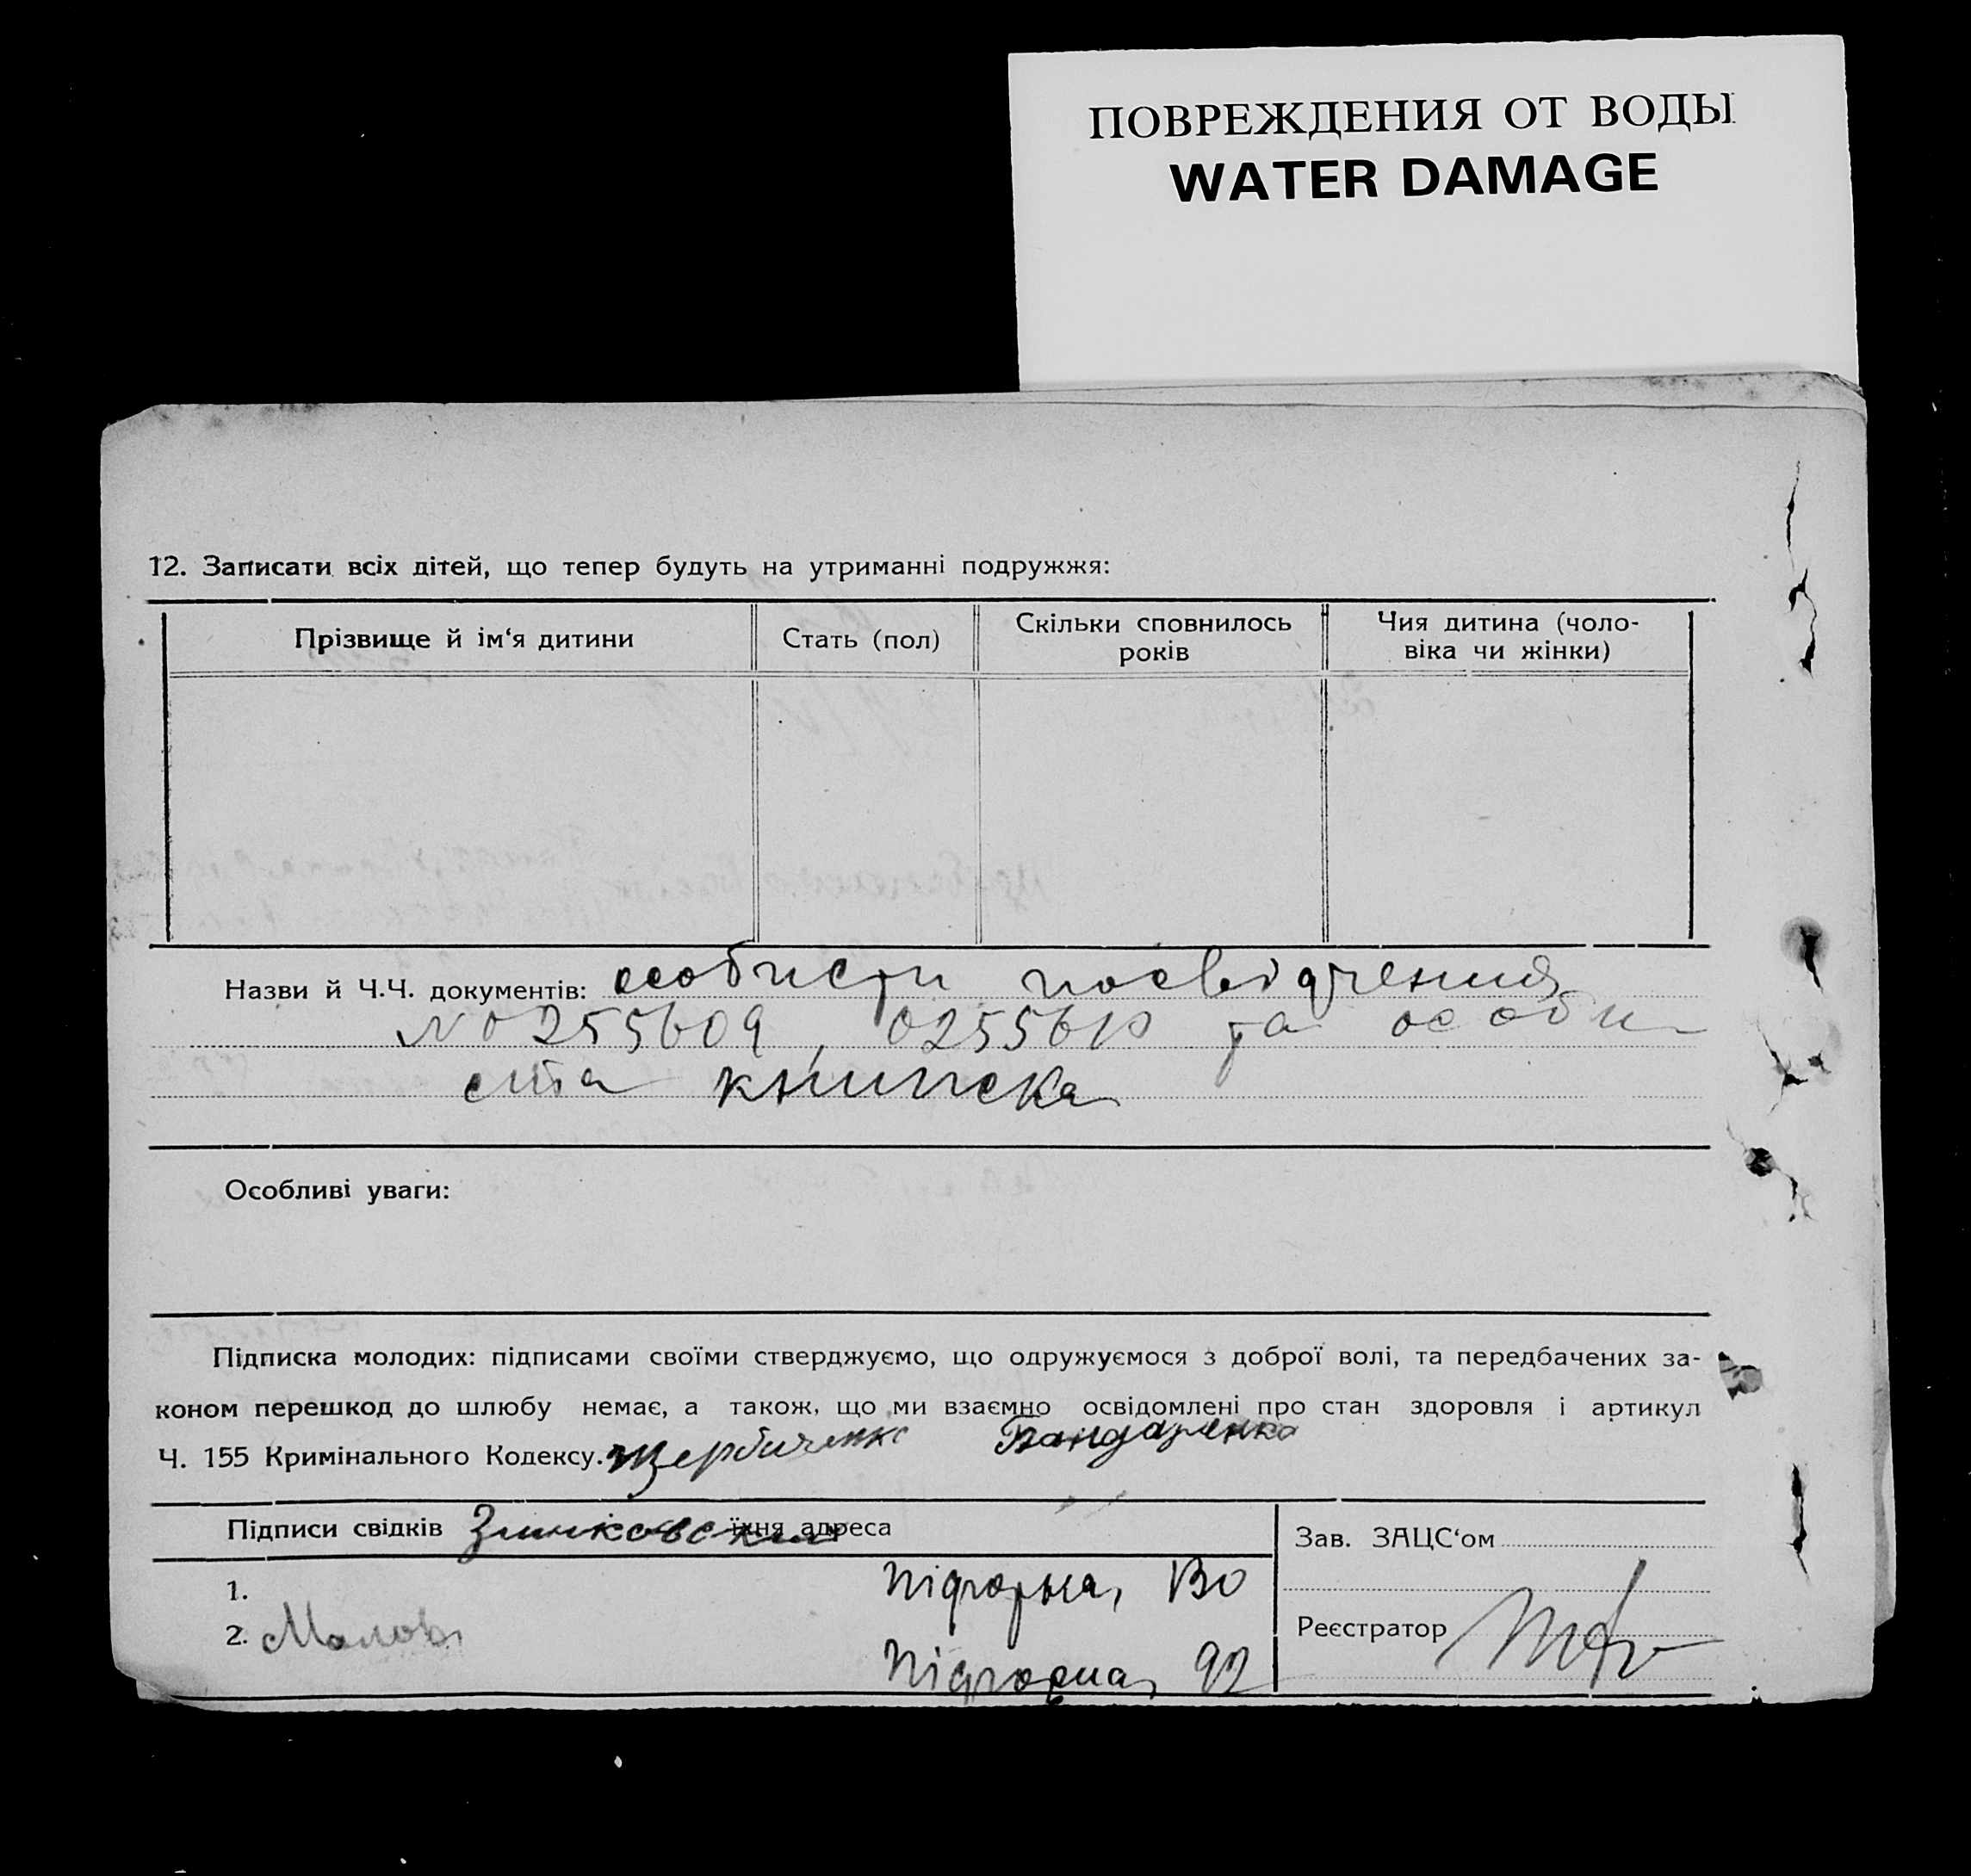 ПОВРЕЖДЕНИЯ ОТ ВОДЫ
WATER DAMAGE
12. Записати всіх дітей, що тепер будуть на утриманні подружжя:
Прізвище й ім‘я дитини
Стать (пол)
Скільки сповнилось років
Чия дитина (чоло-
віка чи жінки)
Назви й Ч.Ч. документів: особисти посвідчення
№ 0255609, 0255610 та особи
ста книжка
Особливі уваги:
Підписка молодих: підписами своїми стверджуємо, що одружуємося з доброї волі, та передбачених за-
коном перешкод до шлюбу немає, а також, що ми взаємно освідомлені про стан здоровля і артикул
Ч. 155 Кримінального Кодексу. Щербиченко Бандаренко
Підписи свідків їхня адреса
1. Підгорна, 80
2. Підгорна, 92
Зав. ЗАЦС‘ом
Реєстратор